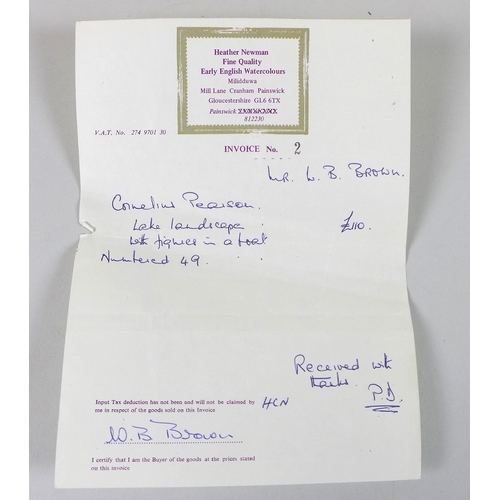 Heather Newman
Fine Quality
Early English Watercolours
Millidduwa
Mill Lane Cranham Painswick
Gloucestershire GL6 6TX
Painswick
812230
V.A.T. No. 274 9701 30
INVOICE No. 2
Mr. W. B. BROWN.
Cornelius Pearson.
Lake landscape
with figures in a boat £110.
Numbered 49.
Received with
thanks.
P.D.
Input Tax deduction has not been and will not be claimed by
me in respect of the goods sold on this Invoice
HCN
W. B Brown
I certify that I am the Buyer of the goods at the prices stated
on this invoice